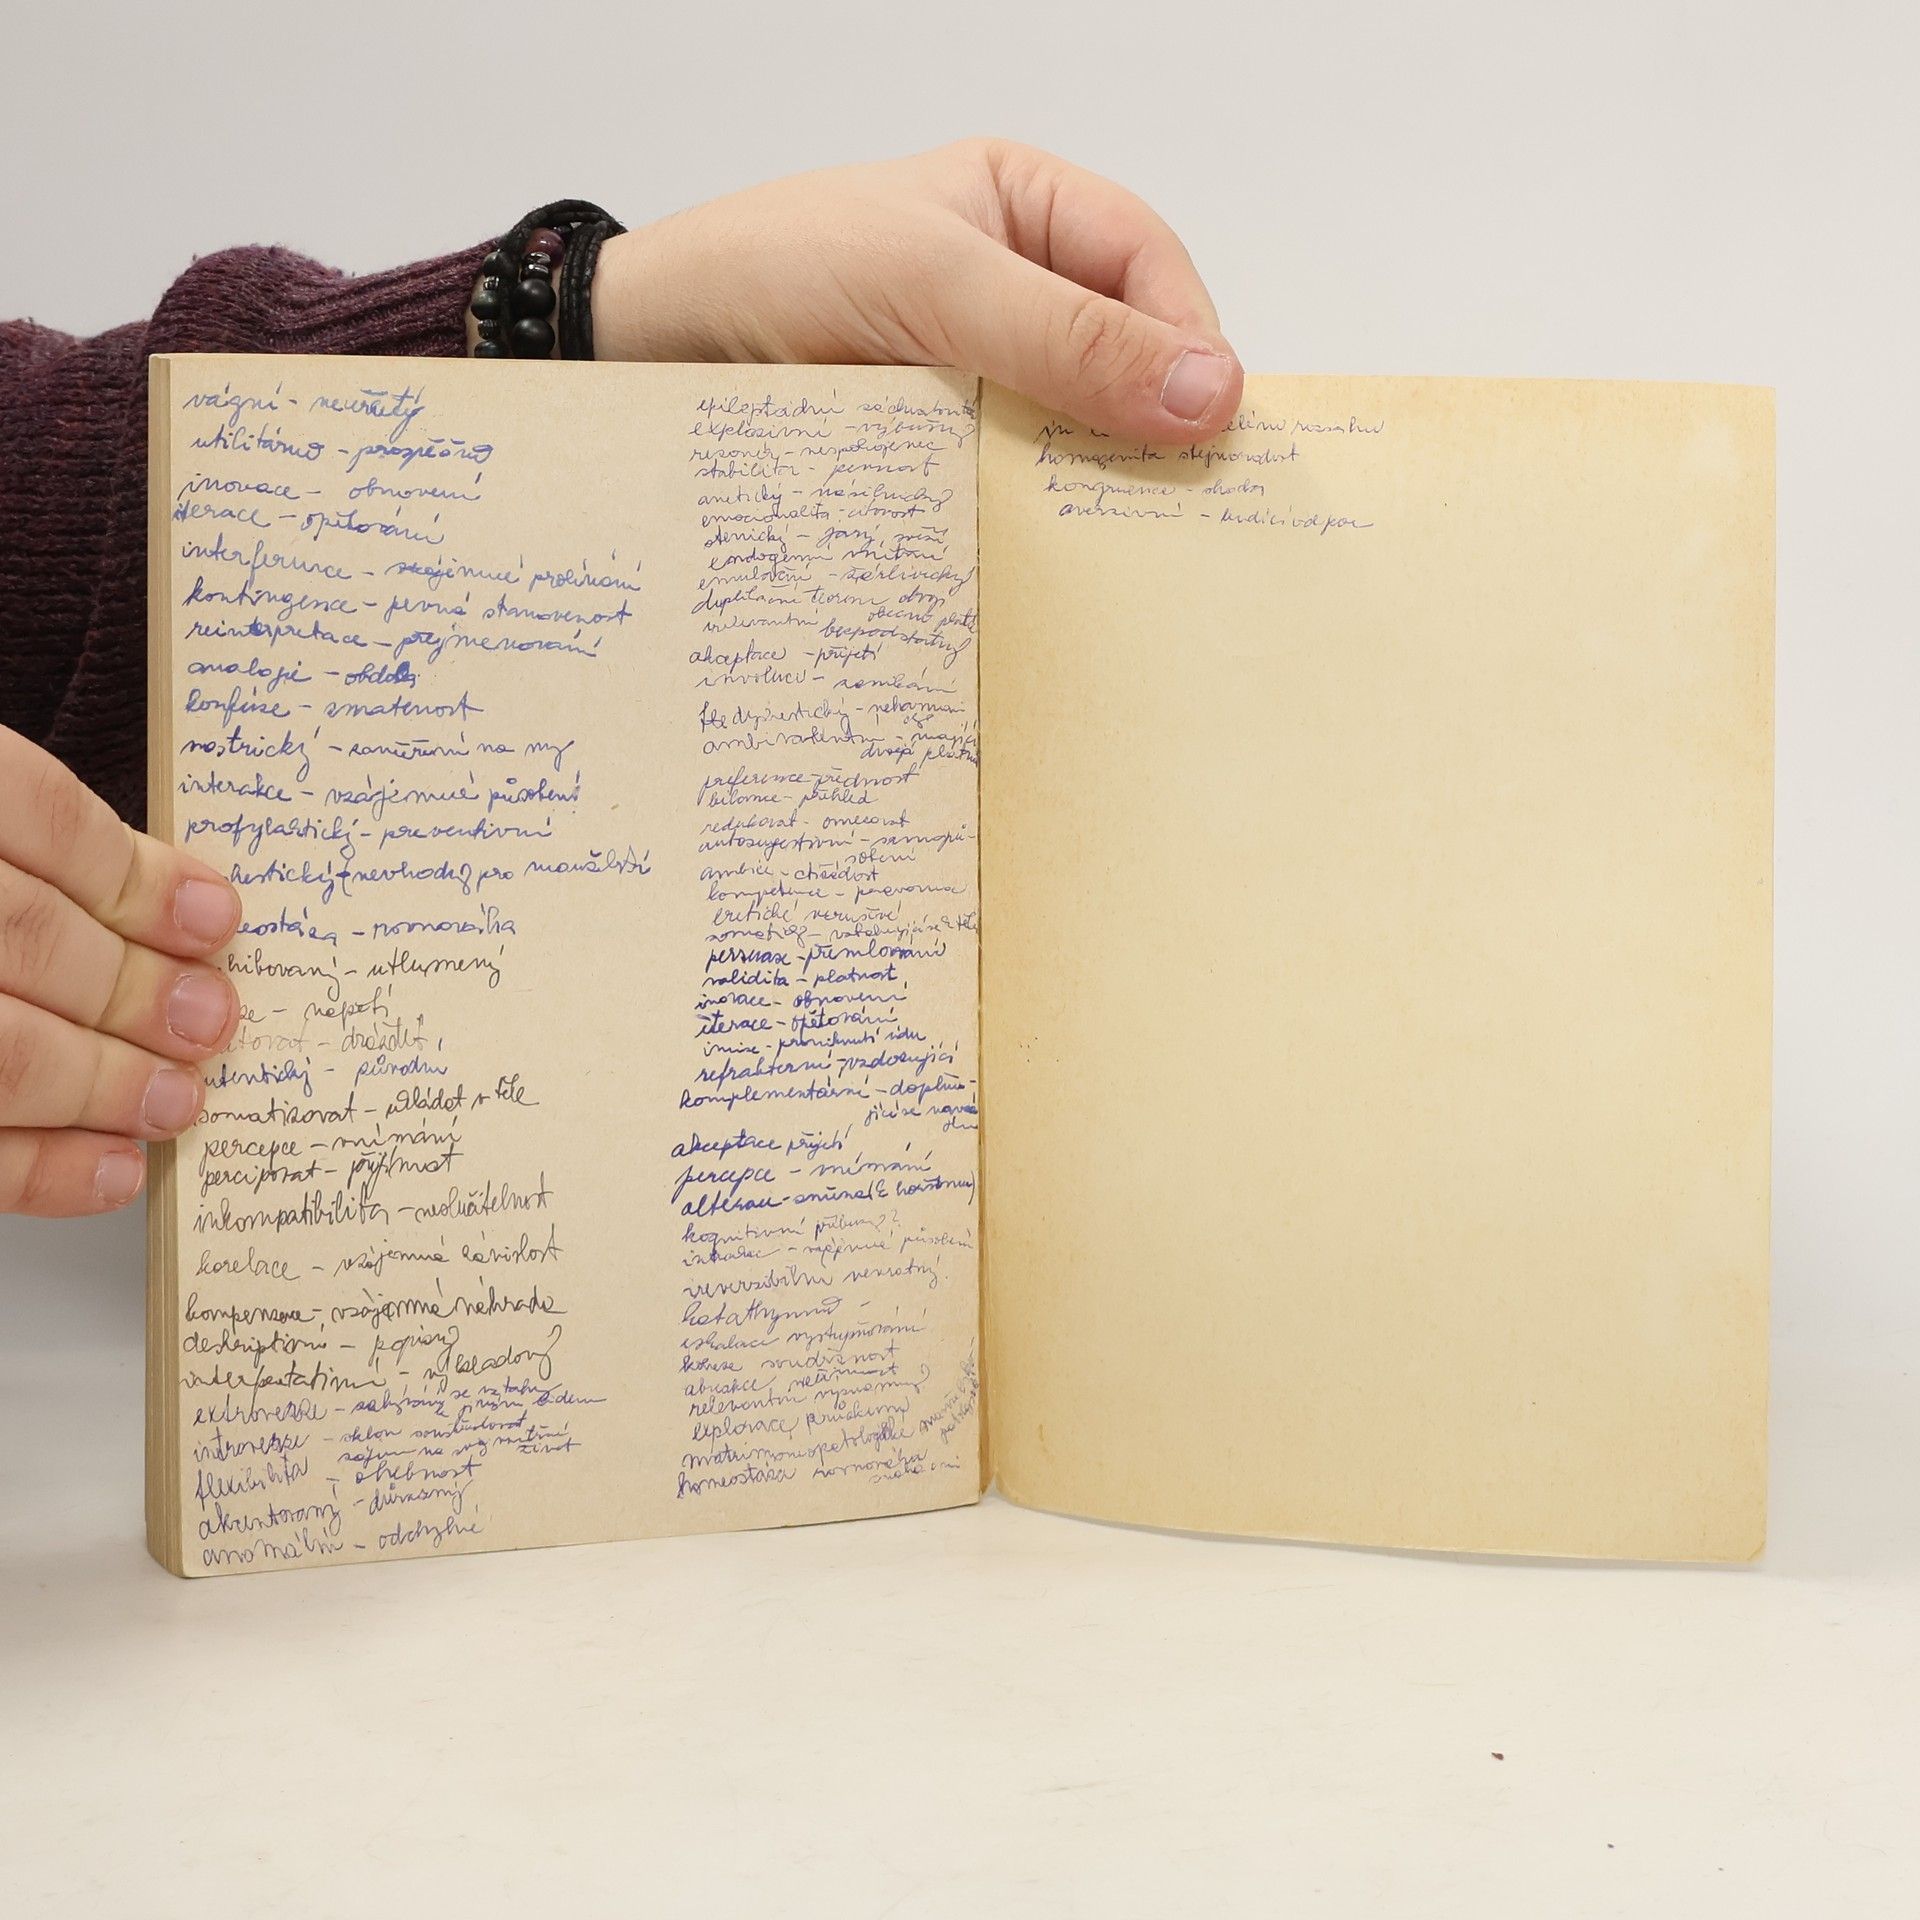 vágní - neurčitý
utilitární - prospěšný
inovace - obnovení
iterace - opětování
interference - vzájemné prolínání
kontingence - pevná stanovenost
reinterpretace - přejmenování
analogie - obdoba
konfúze - zmatenost
nostrický - zaměření na my
interakce - vzájemné působení
profylaktický - preventivní
hestický (nevhodný pro manželství
eostáza - rovnováha
hibovaný - utlumený
ze - napětí
itovat - dráždit
utentický - původní
somatizovat - ukládat v těle
percepce - vnímání
percipovat - přijímat
inkompatibilita - neslučitelnost
korelace - vzájemná závislost
kompenzace - vzájemná náhrada
deskriptivní - popisný
interpretativní - výkladový
extroverze - se vztahy
k jiným lidem
introverze - sklon soustřeďovat
zájem na svůj vnitřní
život
flexibilita - ohebnost
akcentovaný - důrazný
anomální - odchylné
epileptoidní záchvatovitá
explozivní - výbušný
rezonér - nespokojenec
stabilita - pevnost
anetický - násilnický
emocionalita - citovost
stenický - jarý, svěží
endogenní vnitřní
emulační - žárlivecký
duplikační teorém dvoj
obecně platí
irelevantní bezpodstatný
akceptace - přijetí
involuce - zanikání
dyshestický - neharmoni
cký
ambivalentní - mající
dvojí platnost
preference - přednost
bilance - přehled
redukovat - omezovat
autosugestivní - samopů-
sobení
ambice - ctižádost
kompetence - pravomoc
eretické vzrušivé
somatický - vztahující se k tělu
persuaze - přemlouvání
validita - platnost
inovace - obnovení
iterace - opětování
imise - proniknutí
refrakterní - vzdorující
komplementární - doplňu-
jící se navzá
jem
akceptace přijetí
percepce - vnímání
alterace - změna (k horšímu)
kognitivní příbuzný?
interakce - vzájemné působení
ireverzibilní nevratný
katathymní -
eskalace vystupňování
koheze soudržnost
abusakce
relevantní významný
explorace průzkum
matrimoniopatologické
homeostáza rovnováha
elého rozsahu
homogenita stejnorodost
kongruence - shoda
averzivní - budící odpor